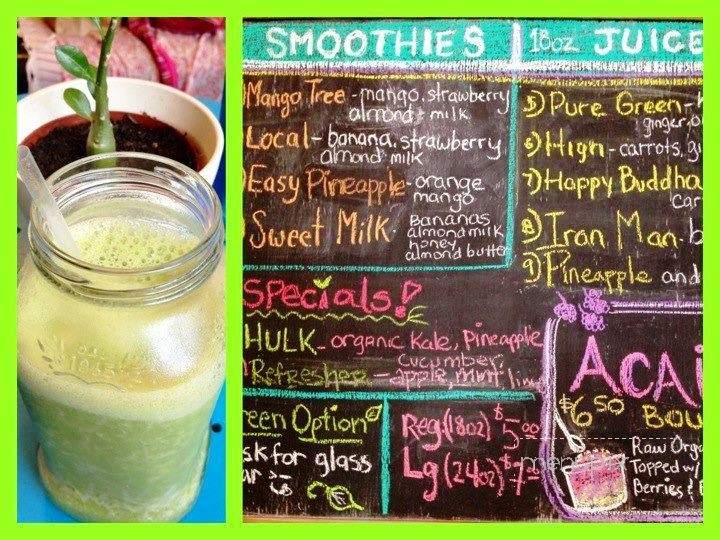 SMOOTHIES
Mango Tree - mango, strawberry
almond milk
Local - banana, strawberry
almond milk
Easy Pineapple - orange
mango
Sweet Milk - Bananas
almond milk
honey
almond butter
18oz JUICE
5) Pure Green -
ginger,
6) High - carrots, gi
7) Happy Buddha
car
8) Iron Man - b
9) Pineapple and
Specials!
HULK - organic Kale, Pineapple
cucumber,
Refresher - apple, mint, lime
een Option
sk for glass
ar
Reg. (18oz) $5.00
Lg (24oz) $7
ACAI
$6.50 BOW
Raw Orga
Topped w/
Berries &